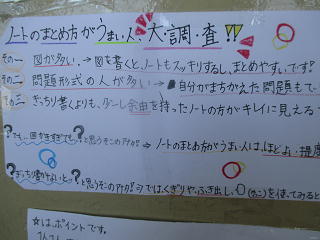 ノートのまとめ方がうまい人、大・調・査!!
その一 図が多い。→図を書くと、ノートもスッキリするし、まとめやすいです!
その二 問題形式の人が多い→自分がまちがえた問題もで
その三 きっちり書くよりも、少し余白を持ったノートの方がキレイに見える
?でも、図を
?と思うそこのアナタ!! →ノートのまとめ方がうまい人は、ほどよい程度
?きっちり書かないと?と思うそこのアナタ!!⇒では、くぎりや、ふき出し、
を使ってみると
☆は、ポイントです。